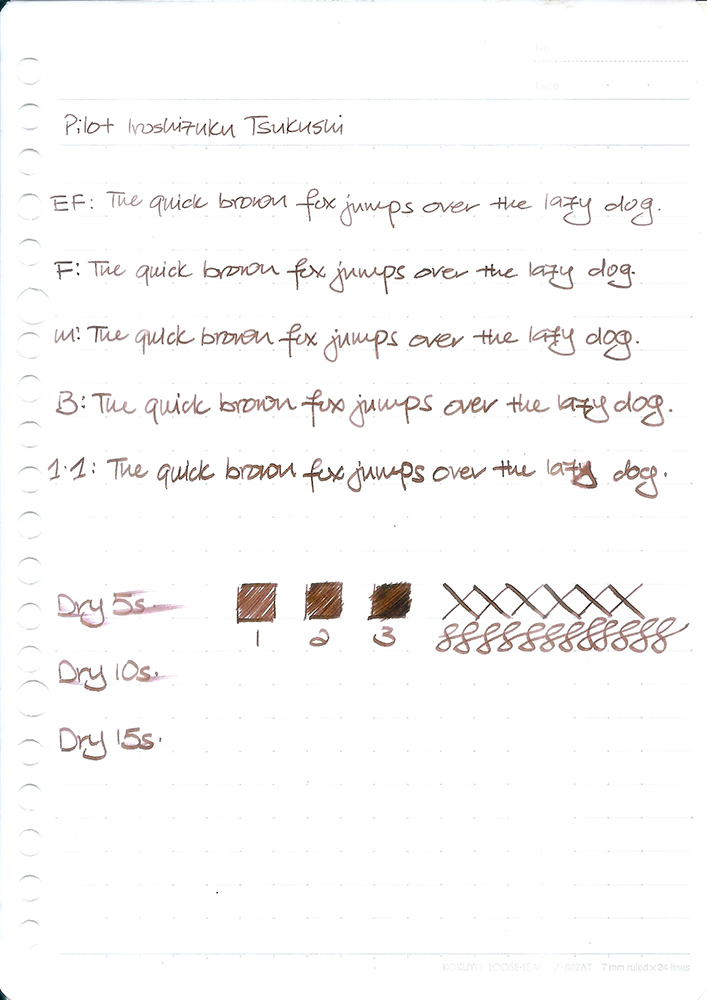 No
Date
Pilot Iroshizuku Tsukushi
EF: The quick brown fox jumps over the lazy dog.
F: The quick brown fox jumps over the lazy dog.
M: The quick brown fox jumps over the lazy dog.
B: The quick brown fox jumps over the lazy dog.
1.1: The quick brown fox jumps over the lazy dog.
Dry 5s.
1 2 3
Dry 10s.
Dry 15s.
KOKUYO LOOSE-LEAF 7 mm ruled×24 lines